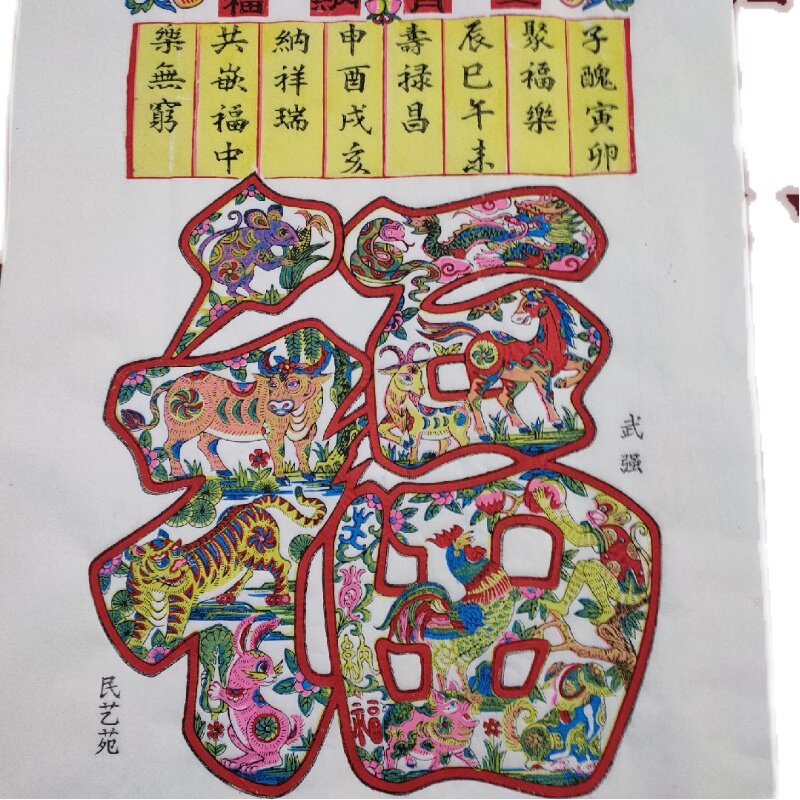 子醜寅卯
聚福樂
辰巳午未
壽禄昌
申酉戌亥
納祥瑞
共嵌福中
樂無窮
武强
福
民艺苑